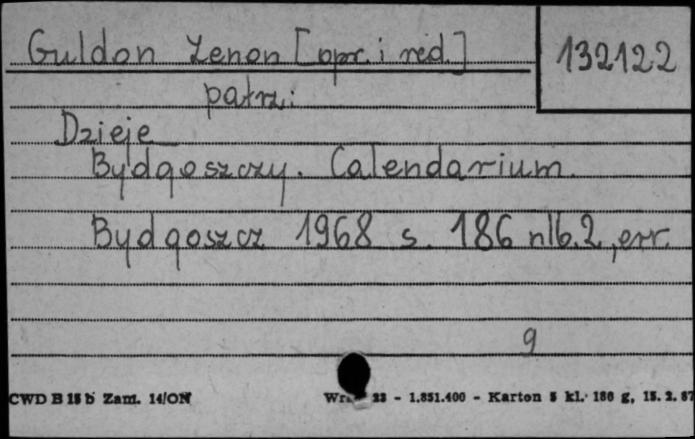 Guldon Zenon [opr. i red.]
132122
patrz:
Dzieje
Bydgoszczy. Calendarium.
Bydgoszcz 1968 s. 186 nlb. 2, err.
9
CWD B 15 b Zam. 14/ON 23 - 1.851.400 - Karton 5 kl. 180 g, 15. 2. 67